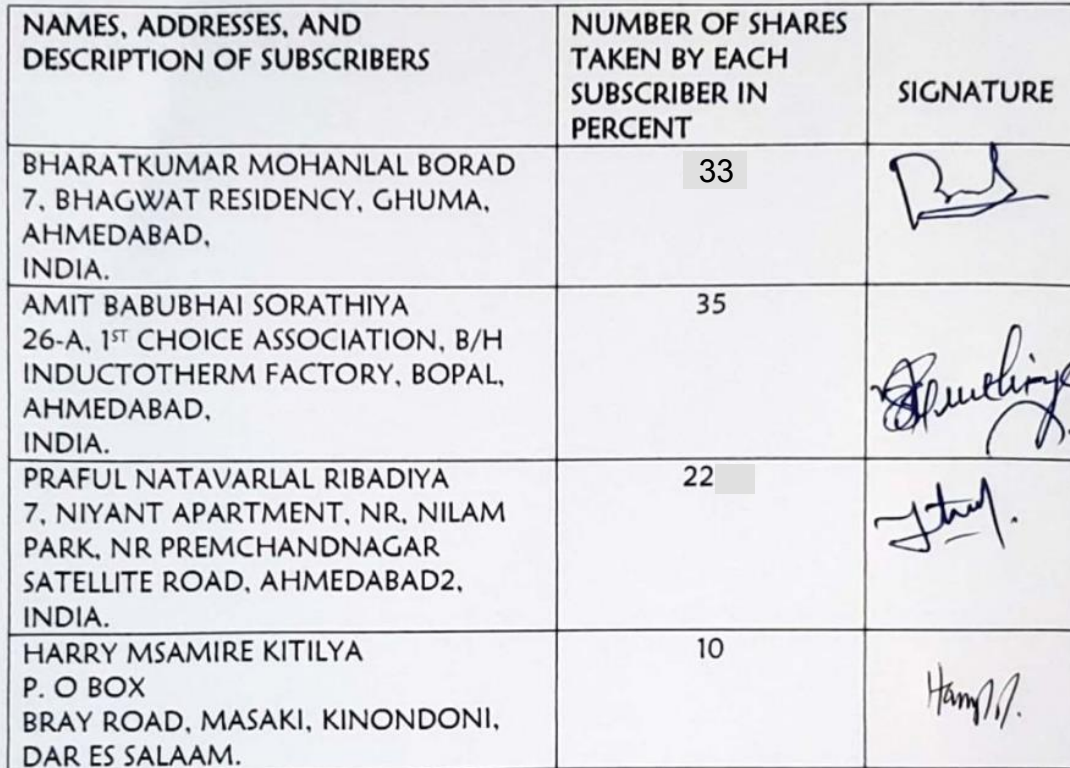 NAMES, ADDRESSES, AND
DESCRIPTION OF SUBSCRIBERS
NUMBER OF SHARES
TAKEN BY EACH
SUBSCRIBER IN
PERCENT
SIGNATURE
BHARATKUMAR MOHANLAL BORAD
7, BHAGWAT RESIDENCY, GHUMA,
AHMEDABAD,
INDIA.
33
AMIT BABUBHAI SORATHIYA
26-A, 1ST CHOICE ASSOCIATION, B/H
INDUCTOTHERM FACTORY, BOPAL,
AHMEDABAD,
INDIA.
35
PRAFUL NATAVARLAL RIBADIYA
7, NIYANT APARTMENT, NR, NILAM
PARK, NR PREMCHANDNAGAR
SATELLITE ROAD, AHMEDABAD2,
INDIA.
22
HARRY MSAMIRE KITILYA
P. O BOX
BRAY ROAD, MASAKI, KINONDONI,
DAR ES SALAAM.
10